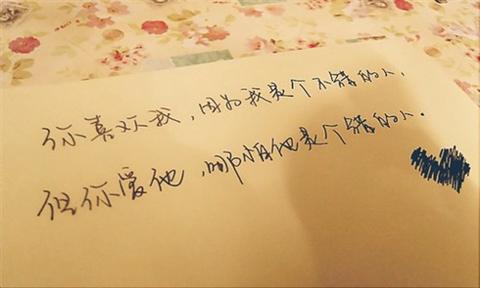 你喜欢我，因为我是个不错的人.
但你爱他，哪怕他是个错的人.